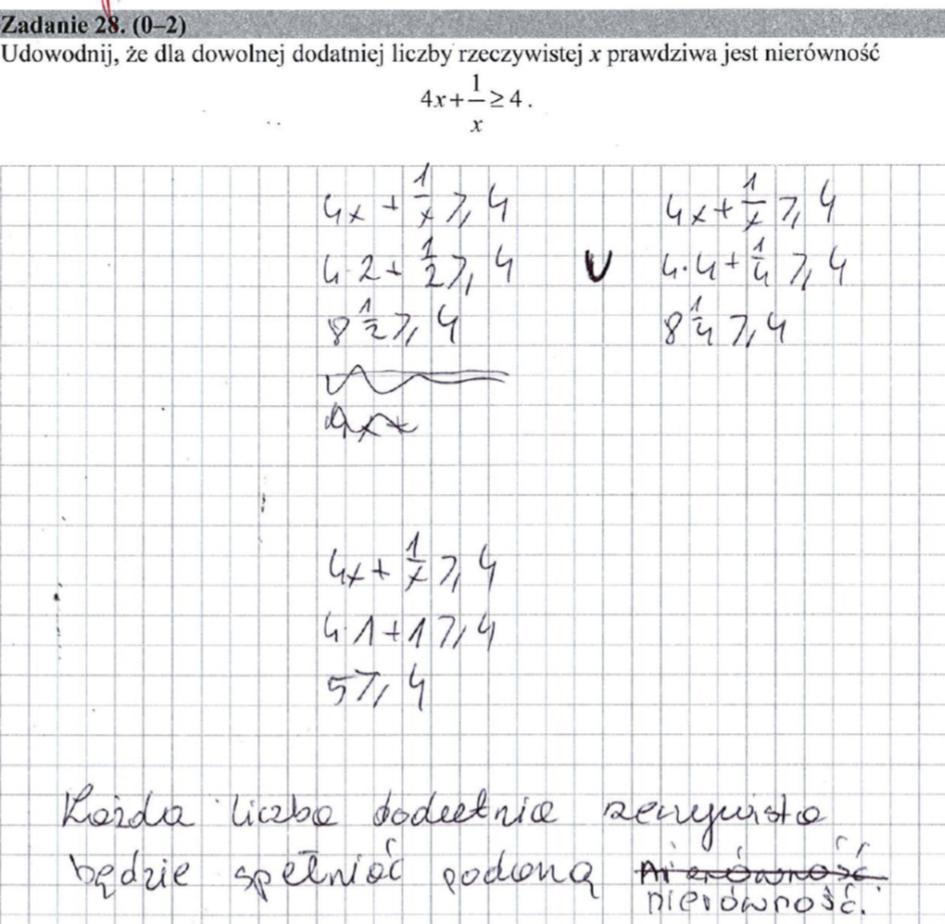 Zadanie 28. (0–2)
Udowodnij, że dla dowolnej dodatniej liczby rzeczywistej x prawdziwa jest nierówność
4x + 1/x ≥ 4.
4x + 1/x ≥ 4    4x + 1/x ≥ 4
4·2 + 1/2 ≥ 4  v  4·4 + 1/4 ≥ 4
8 1/2 ≥ 4    8 1/4 ≥ 4
4x + 1/x ≥ 4
4·1 + 1 ≥ 4
5 ≥ 4
Każda liczba dodatnia rzeczywista
będzie spełniać podaną nierówność
nierówność.